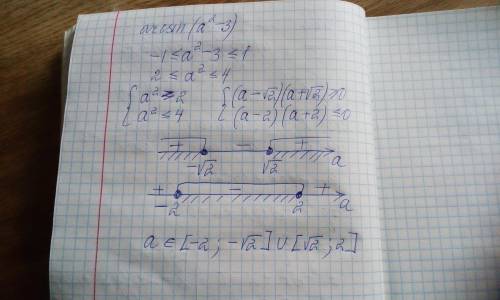 arcsin(a²-3)
-1≤a²-3≤1
2≤a²≤4
{ a²≥2 { (a-√2)(a+√2)≥0
{ a²≤4 { (a-2)(a+2)≤0
+ - +
-√2 √2 a
+ - +
-2 2 a
a∈[-2; -√2]∪[√2; 2]